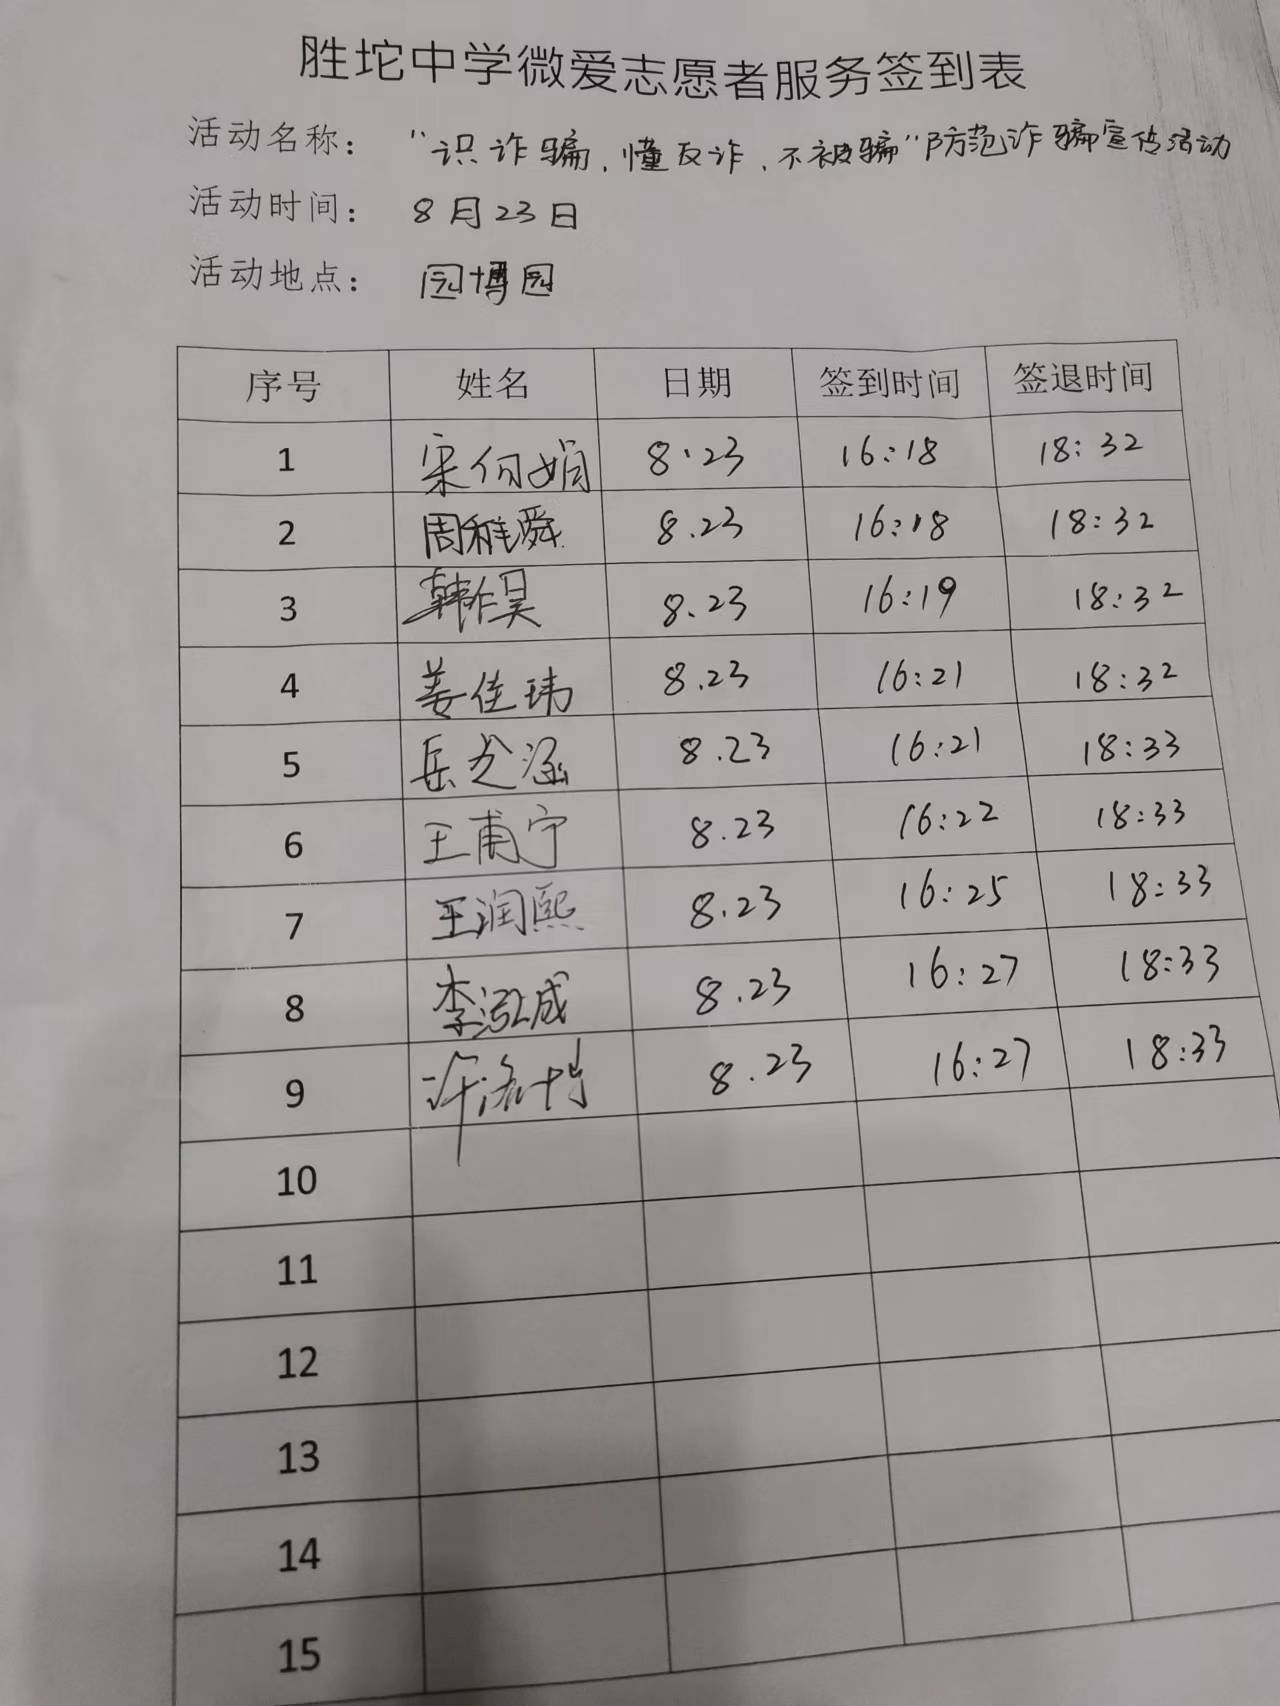 胜坨中学微爱志愿者服务签到表
活动名称： “识诈骗，懂反诈，不被骗”防范诈骗宣传活动
活动时间： 8月23日
活动地点： 园博园
序号 姓名 日期 签到时间 签退时间
1 宋何娟 8.23 16:18 18:32
2 周稚舜 8.23 16:18 18:32
3 韩作昊 8.23 16:19 18:32
4 姜佳玮 8.23 16:21 18:32
5 岳 涵 8.23 16:21 18:33
6 王甫宁 8.23 16:22 18:33
7 王润熙 8.23 16:25 18:33
8 李泓成 8.23 16:27 18:33
9 许 8.23 16:27 18:33
10
11
12
13
14
15